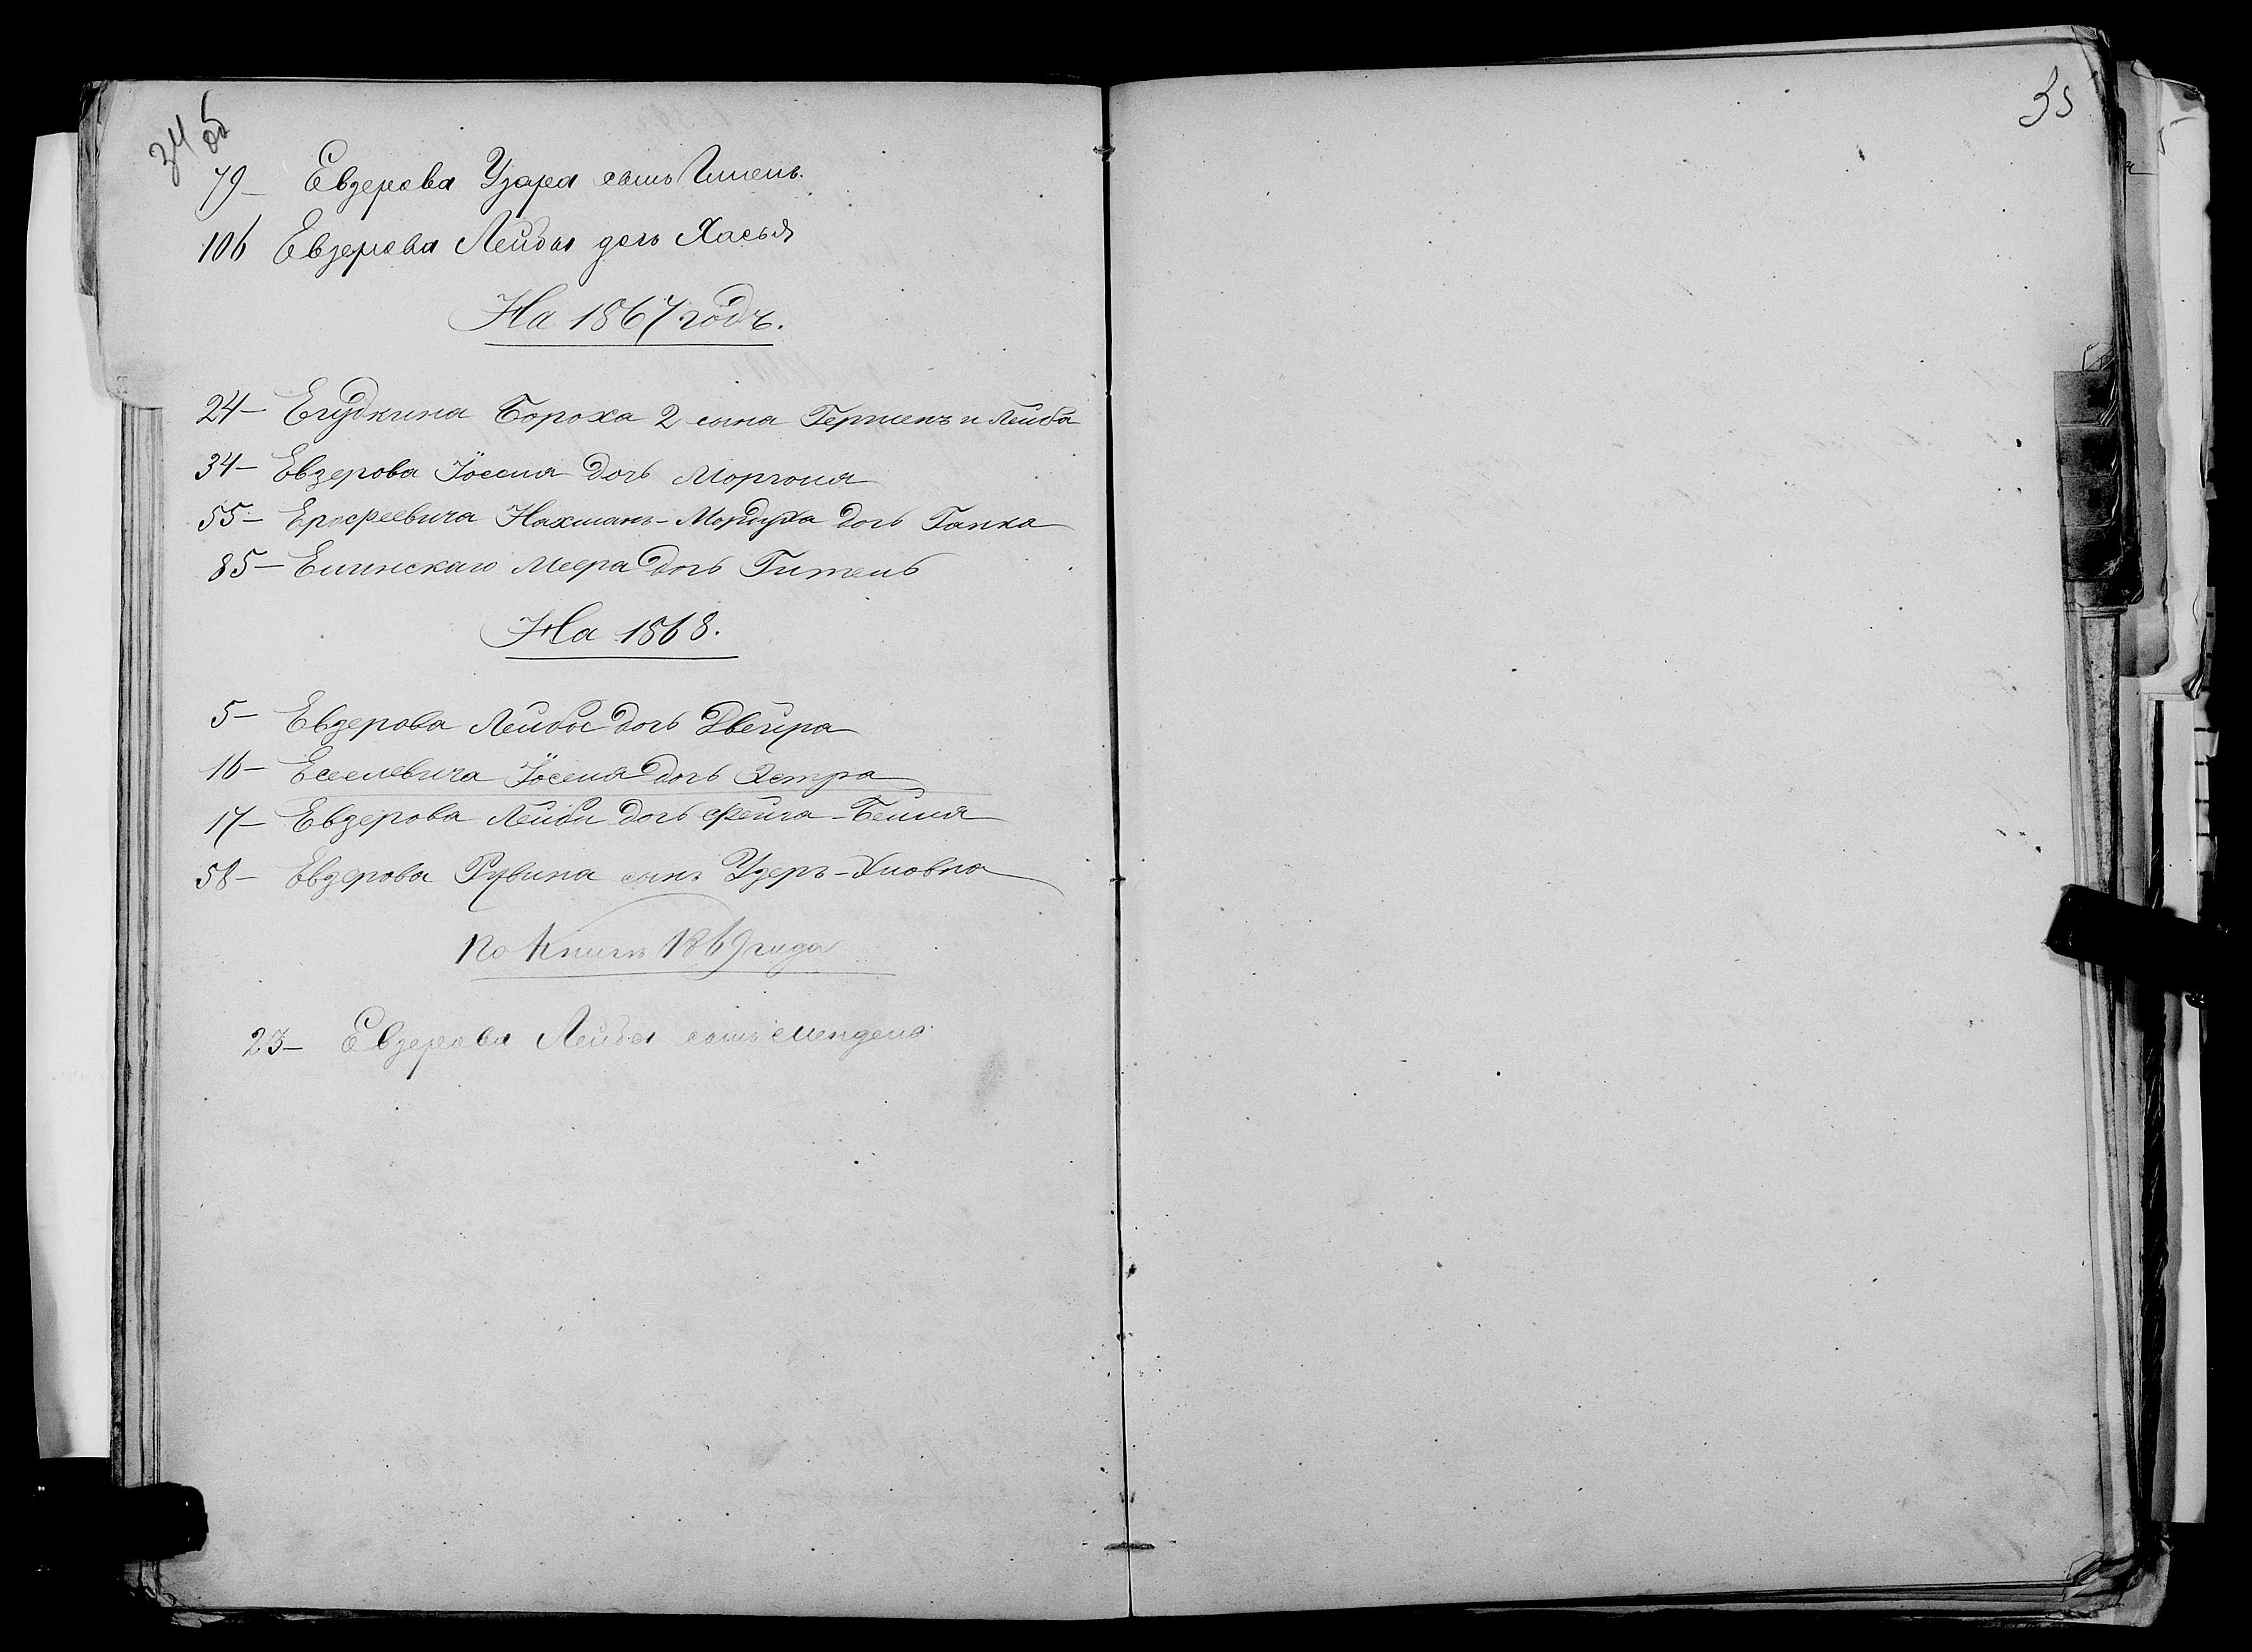 34 об
79 – Евзерова Узара сынъ Гилель.
106 Евзерова Лейбы дочь Хасья
На 1867 годъ.
24 – Егудкина Бороха 2 сына Гершенъ и Лейба
34 – Евзерова Іоселя дочь
55 – Ерофеевича Нахманъ-Мордуха дочь Ганка
85 – Меера дочь Гитель
На 1868.
5 – Евзерова Лейбы дочь Двейра
16 – Еселевича Іоселя дочь Эстра
17 – Евзерова Лейбы дочь Фейга-Бейля
58 – Евзерова Рувина сынъ Узеръ-
По книгѣ 1869 года
23 – Евзерова Лейбы сынъ Мендель
35